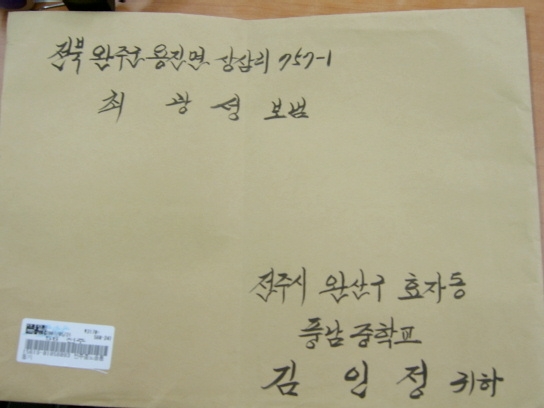 전북 완주군 용진면 상삼리 757-1
최 광 성 보냄
전주시 완산구 효자동
풍남중학교
김 인 정 귀하